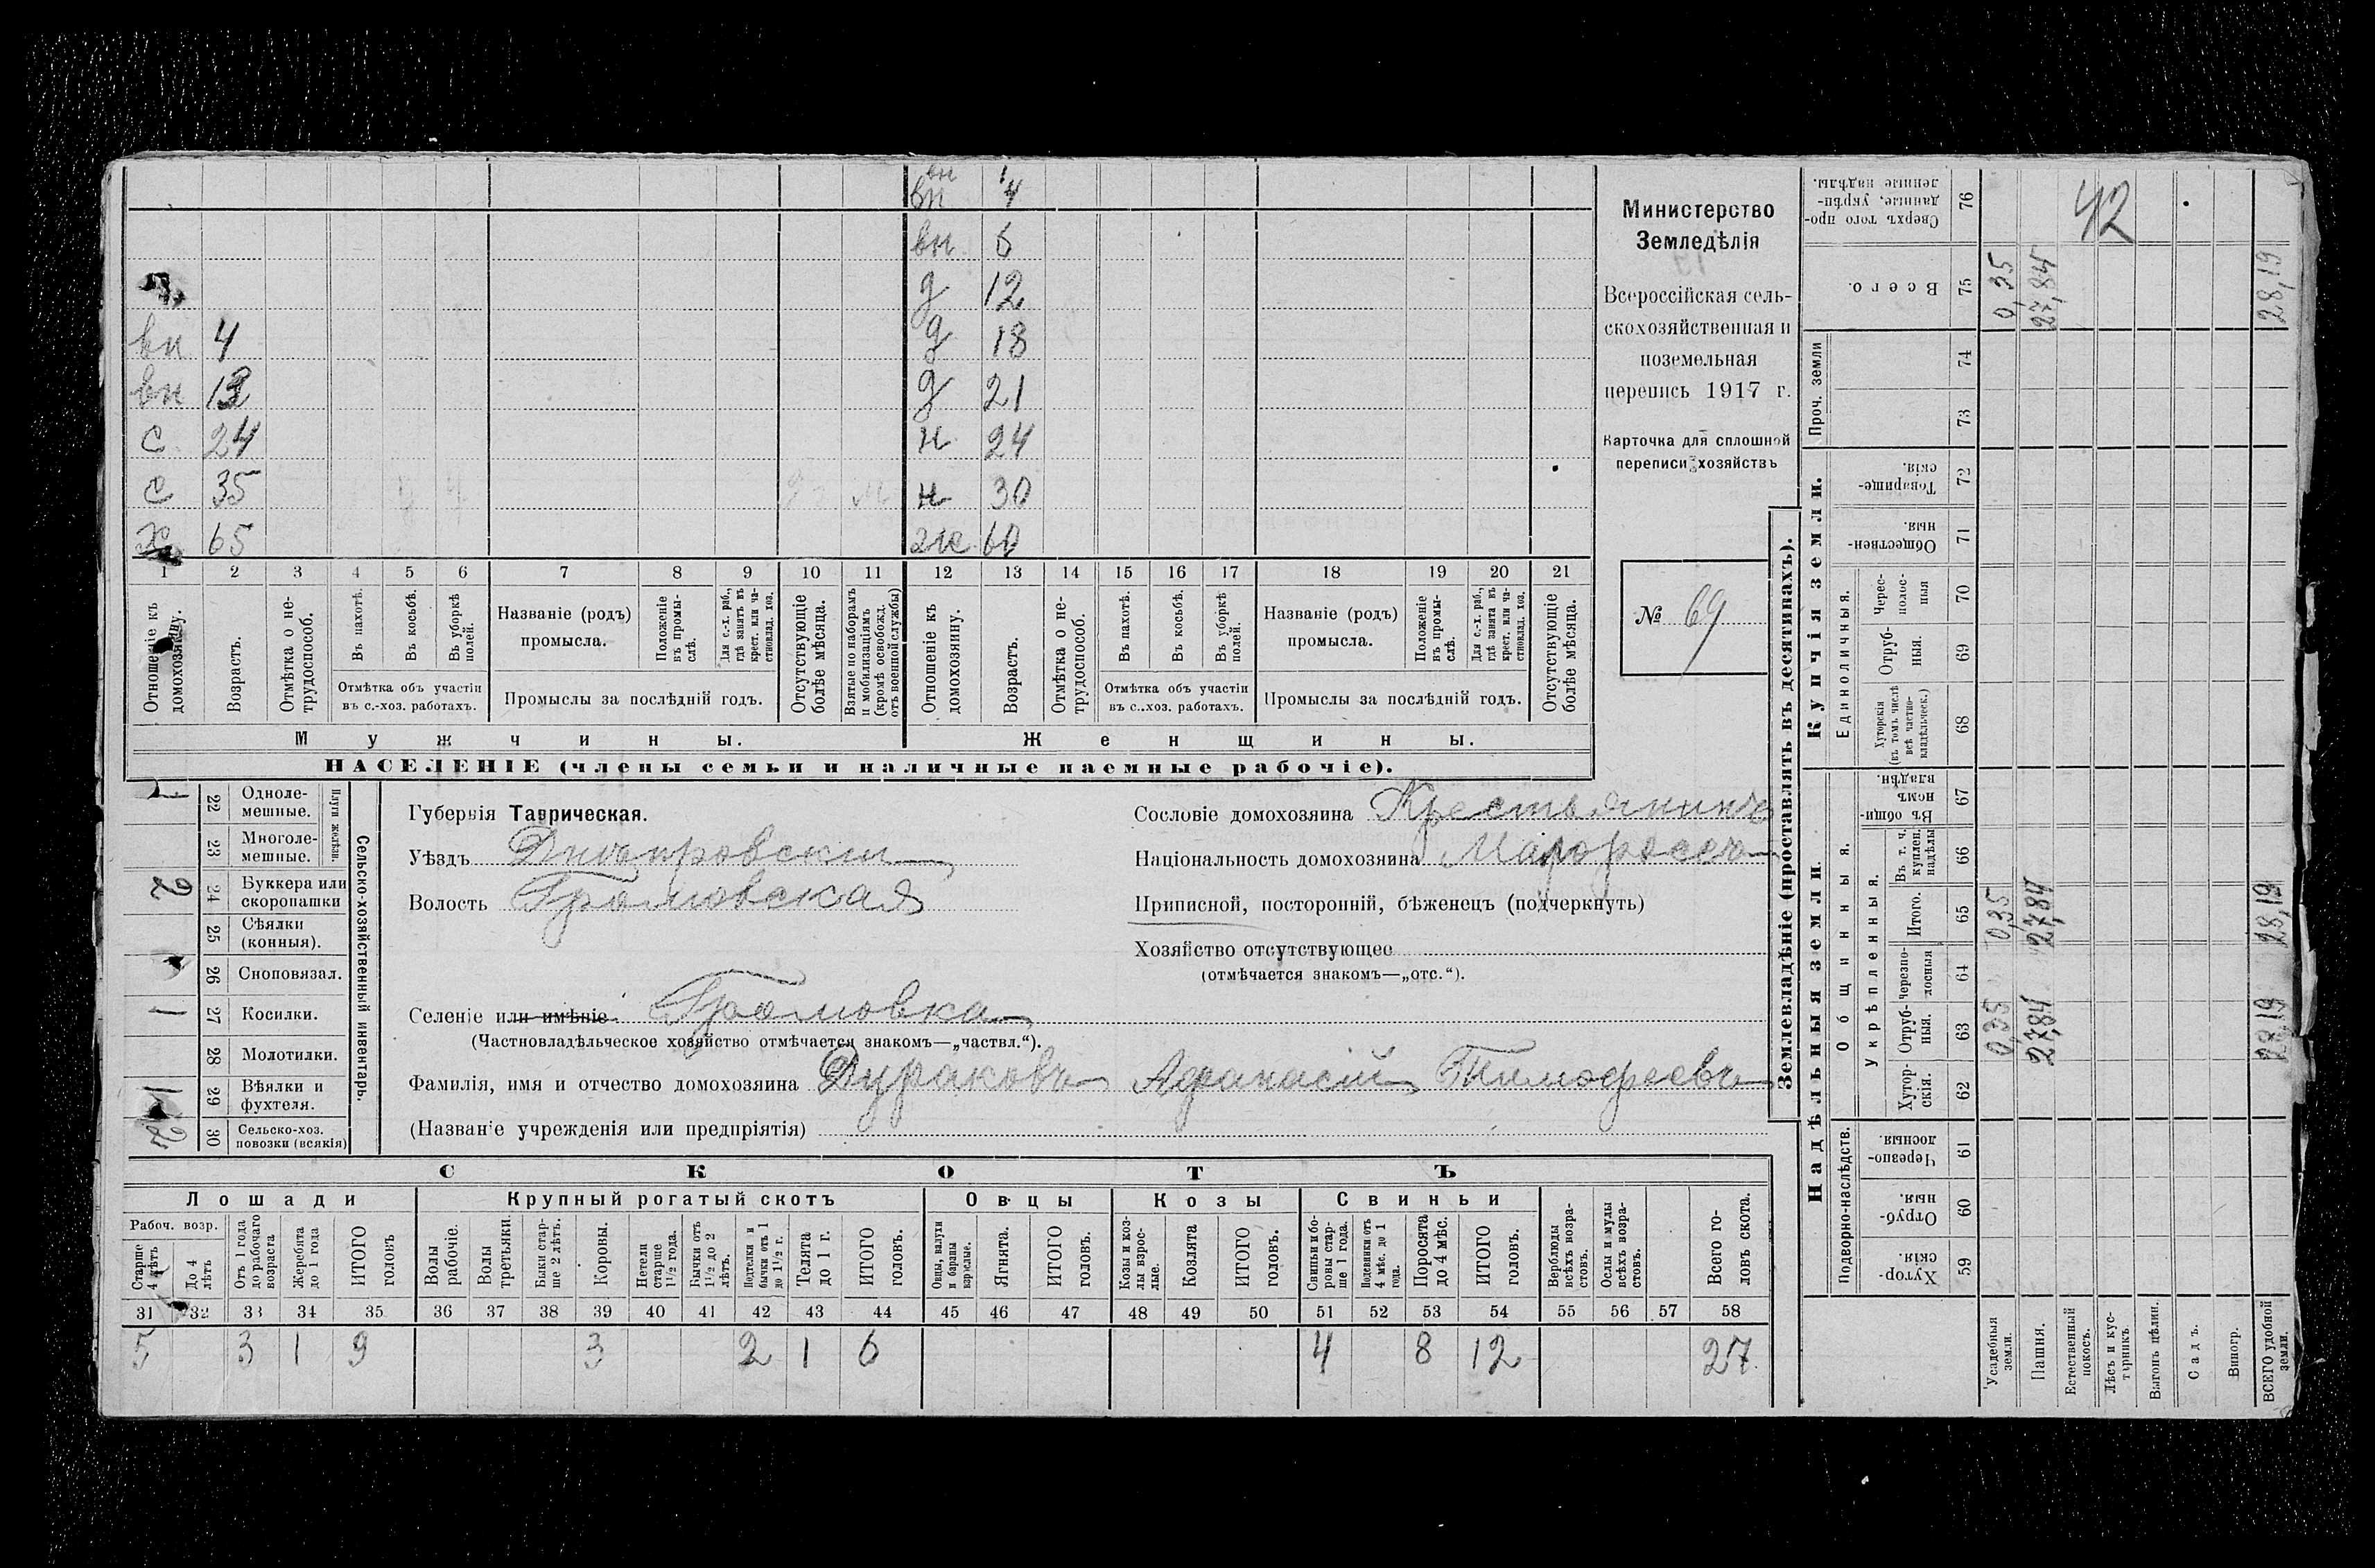 вн 1
вн 4
вн 6
д 12
вн 4 д 18
вн 13 д 21
с 24 н 24
с 35 н 30
х 65 ж 60
1 2 3 4 5 6 7 8 9 10 11 12 13 14 15 16 17 18 19 20 21
Отношеніе къ домохозяину.
Возрастъ.
Отмѣтка о не-трудоспособ.
Въ пахотѣ.
Въ косьбѣ.
Въ уборкѣ полей.
Отмѣтка объ участіи
въ с.-хоз. работахъ.
Названіе (родъ)
промысла.
Положеніе въ промы-слѣ.
Для с.-х. раб., гдѣ занятъ въ крест. или ча-стновлад. хоз.
Промыслы за послѣдній годъ.
Отсутствующіе болѣе мѣсяца.
Взятые по наборамъ и мобилизаціямъ (кромѣ освобожд. отъ военной службы)
Отношеніе къ домохозяину.
Возрастъ.
Отмѣтка о не-трудоспособ.
Въ пахотѣ.
Въ косьбѣ.
Въ уборкѣ полей.
Отмѣтка объ участіи
въ с..хоз. работахъ.
Названіе (родъ)
промысла.
Положеніе въ промы-слѣ.
Для с.-х. раб., гдѣ занята въ крест. или ча-стновлад. хоз.
Промыслы за послѣдній годъ.
Отсутствующіе болѣе мѣсяца.
Мужчины. Женщины.
НАСЕЛЕНІЕ (члены семьи и наличные наемные рабочіе).
Министерство
Земледѣлія
Всероссійская сель-
скохозяйственная и
поземельная
перепись 1917 г.
Карточка для сплошной
переписи хозяйствъ
№ 69
Сельско-хозяйственный инвентарь.
Плуги желѣзн.
1 22 Одноле-мешные.
23 Многоле-мешные.
2 24 Буккера или скоропашки
25 Сѣялки (конныя).
26 Сноповязал.
1 27 Косилки.
28 Молотилки.
1 29 Вѣялки и фухтеля.
2 30 Сельско-хоз. повозки (всякія)
Губернія Таврическая.
Уѣздъ Днепровскій
Волость Громовская
Селеніе или имѣніе Громовка
(Частновладѣльческое хозяйство отмѣчается знакомъ—„частвл.“).
Фамилія, имя и отчество домохозяина Дураковъ Афанасій Тимофеевъ
(Названіе учрежденія или предпріятія)
Сословіе домохозяина Крестьянинъ
Національность домохозяина Малороссъ
Приписной, посторонній, бѣженецъ (подчеркнуть)
Хозяйство отсутствующее
(отмѣчается знакомъ—„отс.“).
СКОТЪ
Лошади Крупный рогатый скотъ Овцы Козы Свиньи
Рабоч. возр.
Старше 4 лѣтъ
До 4 лѣтъ
Отъ 1 года до рабочаго возраста
Жеребята до 1 года
ИТОГО головъ
Волы рабочіе.
Волы третьяки.
Быки стар-ше 2 лѣтъ.
Коровы.
Нетели старше 1½ года.
Бычки отъ 1½ до 2 лѣтъ.
Подтелки и бычки отъ 1 до 1½ г.
Телята до 1 г.
ИТОГО головъ.
Овцы, валухи и бараны взрослые.
Ягнята.
ИТОГО головъ.
Козы и коз-лы взрос-лые.
Козлята
ИТОГО головъ.
Свиньи и бо-ровы стар-ше 1 года.
Подсвинки отъ 4 мѣс. до 1 года.
Поросята до 4 мѣс.
ИТОГО головъ.
Верблюды всѣхъ возра-стовъ.
Ослы и мулы всѣхъ возра-стовъ.
Всего го-ловъ скота.
31 32 33 34 35 36 37 38 39 40 41 42 43 44 45 46 47 48 49 50 51 52 53 54 55 56 57 58
5 3 1 9 3 2 1 6 4 8 12 27
Землевладѣніе (проставлять въ десятинахъ).
Купчія земли.
Надѣльныя земли.
Сверхъ того про-данные, укрѣп-ленные надѣлы. 76
42
Всего. 75 0,35 27,84 28,19
Проч. земли 74
73
Товарище-скія. 72
Обществен-ныя. 71
Единоличныя.
Черес-полос-ныя 70
Отруб-ныя. 69
Хуторскія (въ томъ числѣ всѣ частно-владѣльческ.) 68
Общинныя.
Въ общин-номъ владѣн. 67
Укрѣпленныя.
Въ т. ч. куплен. надѣлы 66
Итого. 65 0,35 27,84 28,19
Черезпо-лосныя 64
Отруб-ныя. 63 0,35 27,84 28,19
Хутор-скія. 62
Подворно-наслѣдств.
Черезпо-лосныя. 61
Отруб-ныя. 60
Хутор-скія 59
Усадебныя земли.
Пашня.
Естественный покосъ.
Лѣсъ и кус-тарникъ.
Выгонъ цѣлин.
Садъ.
Виногр.
ВСЕГО удобной земли.